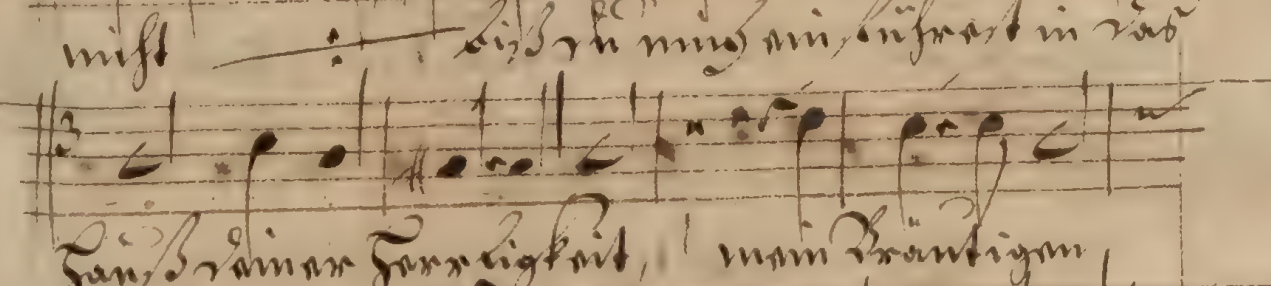 nicht biß du mich einführest in das
Hauß deiner Herrligkeit, mein Bräutigam,